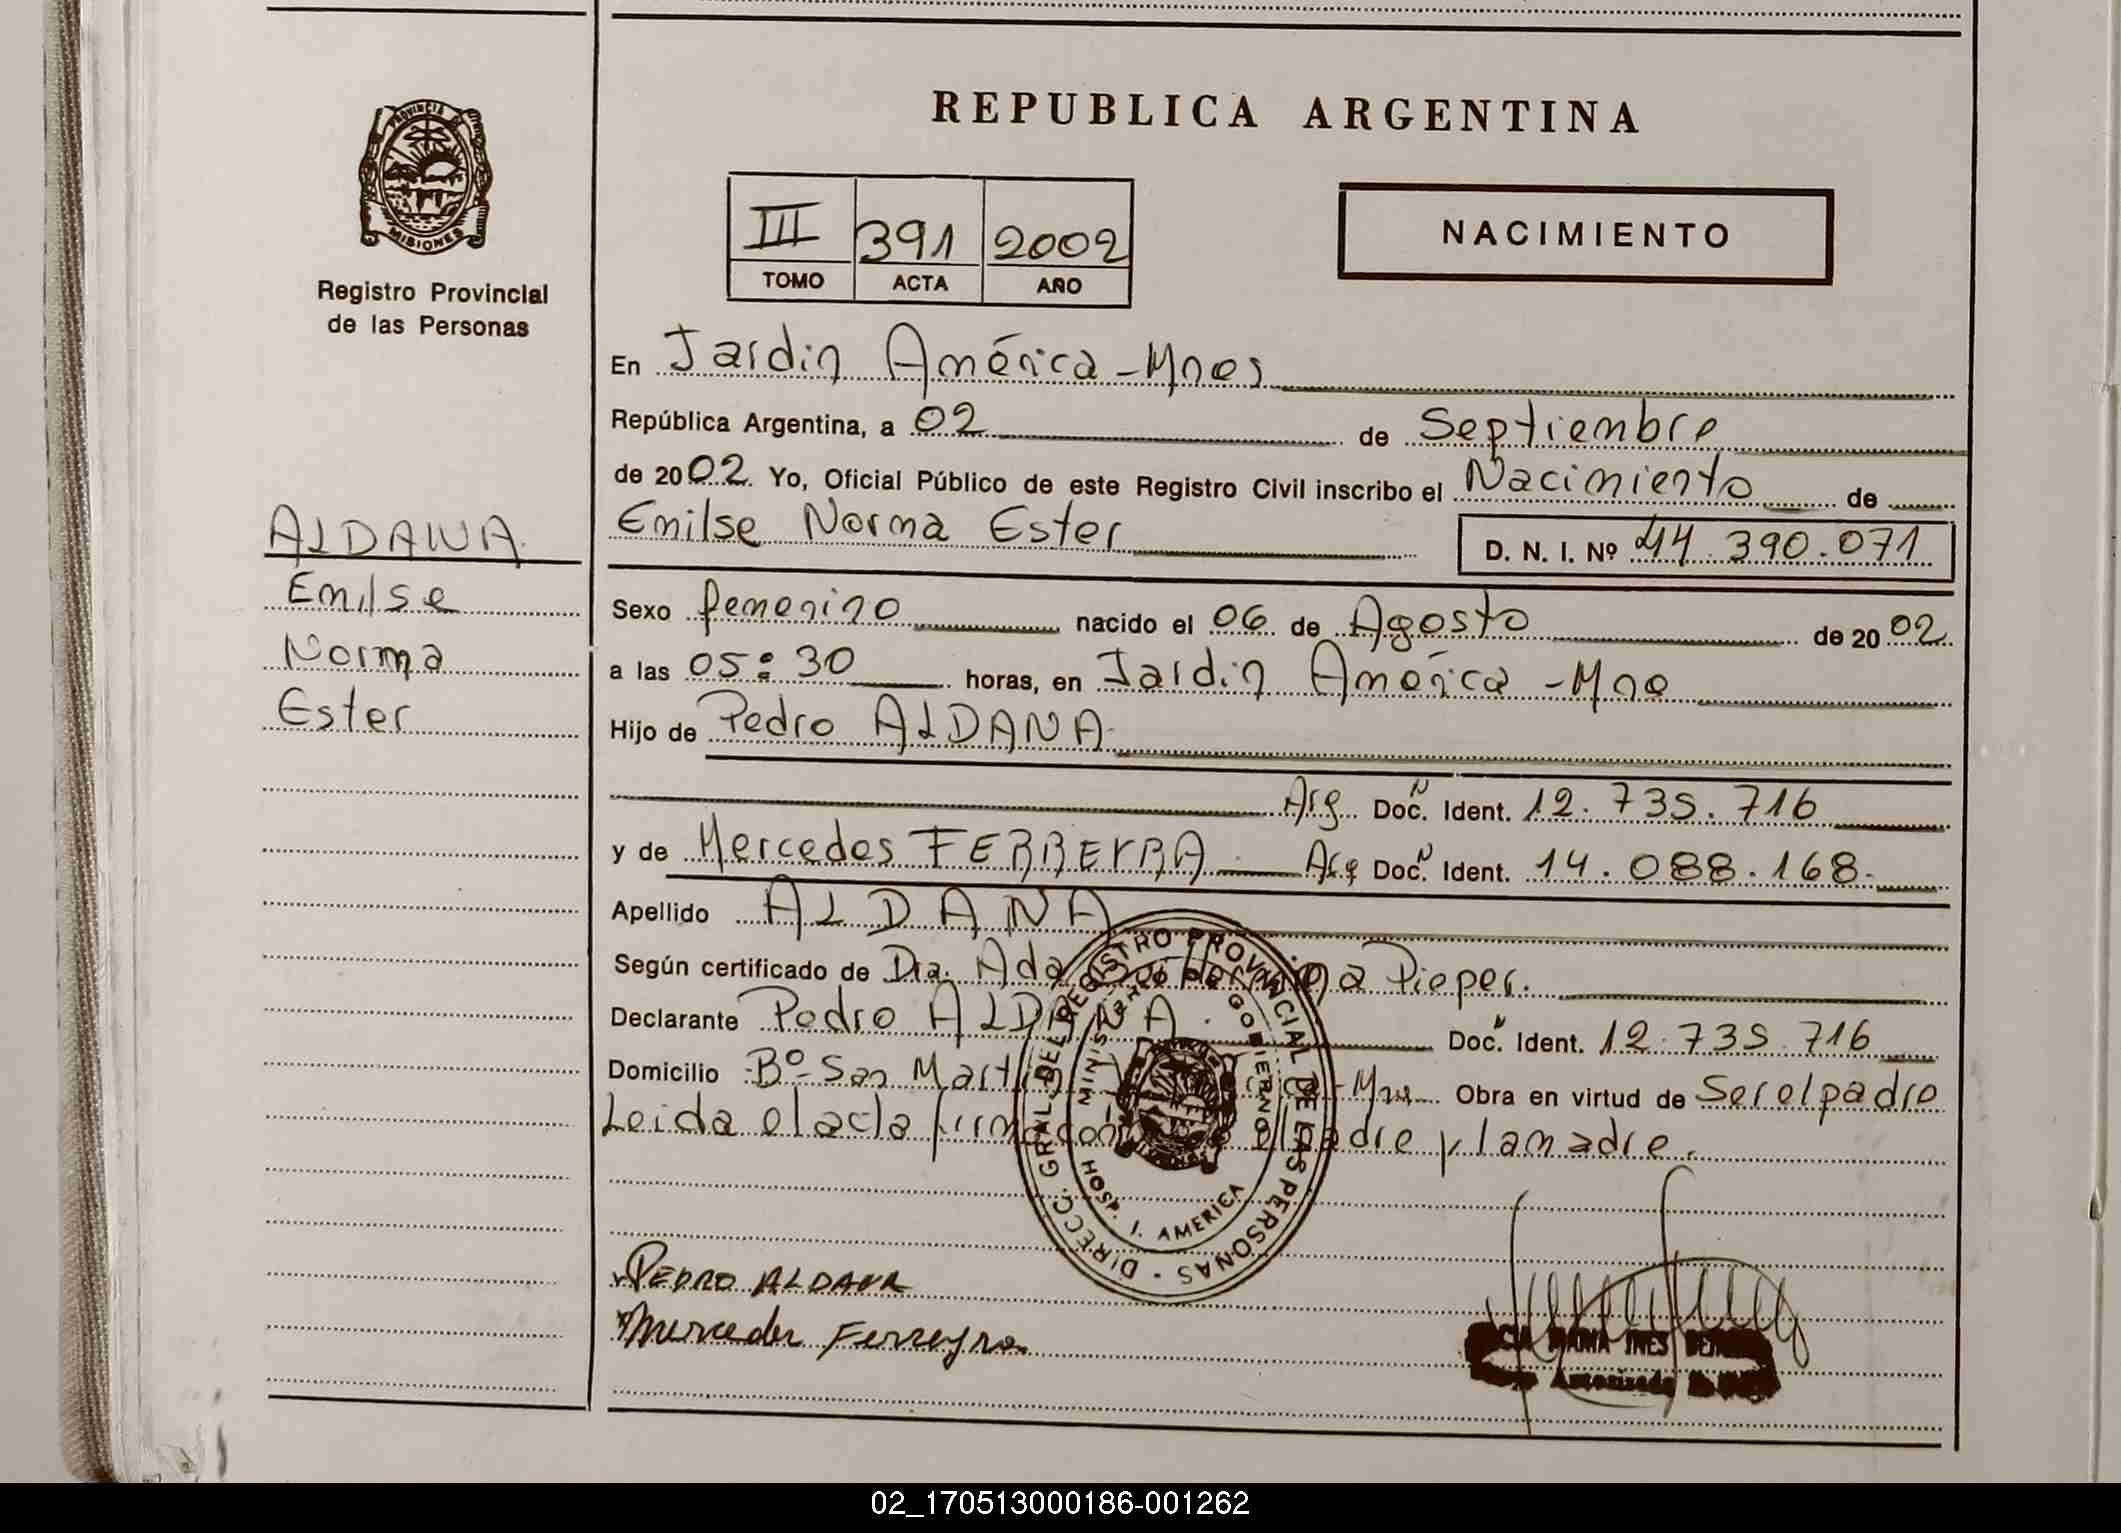 REPUBLICA ARGENTINA
PROVINCIA
MISIONES
Registro Provincial
de las Personas
III 391 2002
TOMO ACTA AÑO
NACIMIENTO
En Jardin América - Mnes
República Argentina, a 02 de Septiembre
de 2002. Yo, Oficial Público de este Registro Civil inscribo el Nacimiento de
Emilse Norma Ester D. N. I. Nº 44.390.071
ALDANA
Emilse
Norma
Ester
Sexo femenino nacido el 06 de Agosto de 2002
a las 05:30 horas, en Jardin América - Mne
Hijo de Pedro ALDANA
Arg. Doc. Ident. 12.735.716
y de Mercedes FERREYRA Arg Doc. Ident. 14.088.168.
Apellido ALDANA
Según certificado de Dra. Ada Pieper.
Declarante Pedro ALDANA. Doc. Ident. 12.735.716
Domicilio Bº San Martin Obra en virtud de Ser el padre
Leida el acta firma el padre y la madre.
DIRECC. GRAL. DEL REGISTRO PROVINCIAL DE LAS PERSONAS
MINISTERIO DE GOBIERNO
HOSP. J. AMERICA
PEDRO ALDANA
Mercedes Ferreyra
MARIA INES
02_170513000186-001262